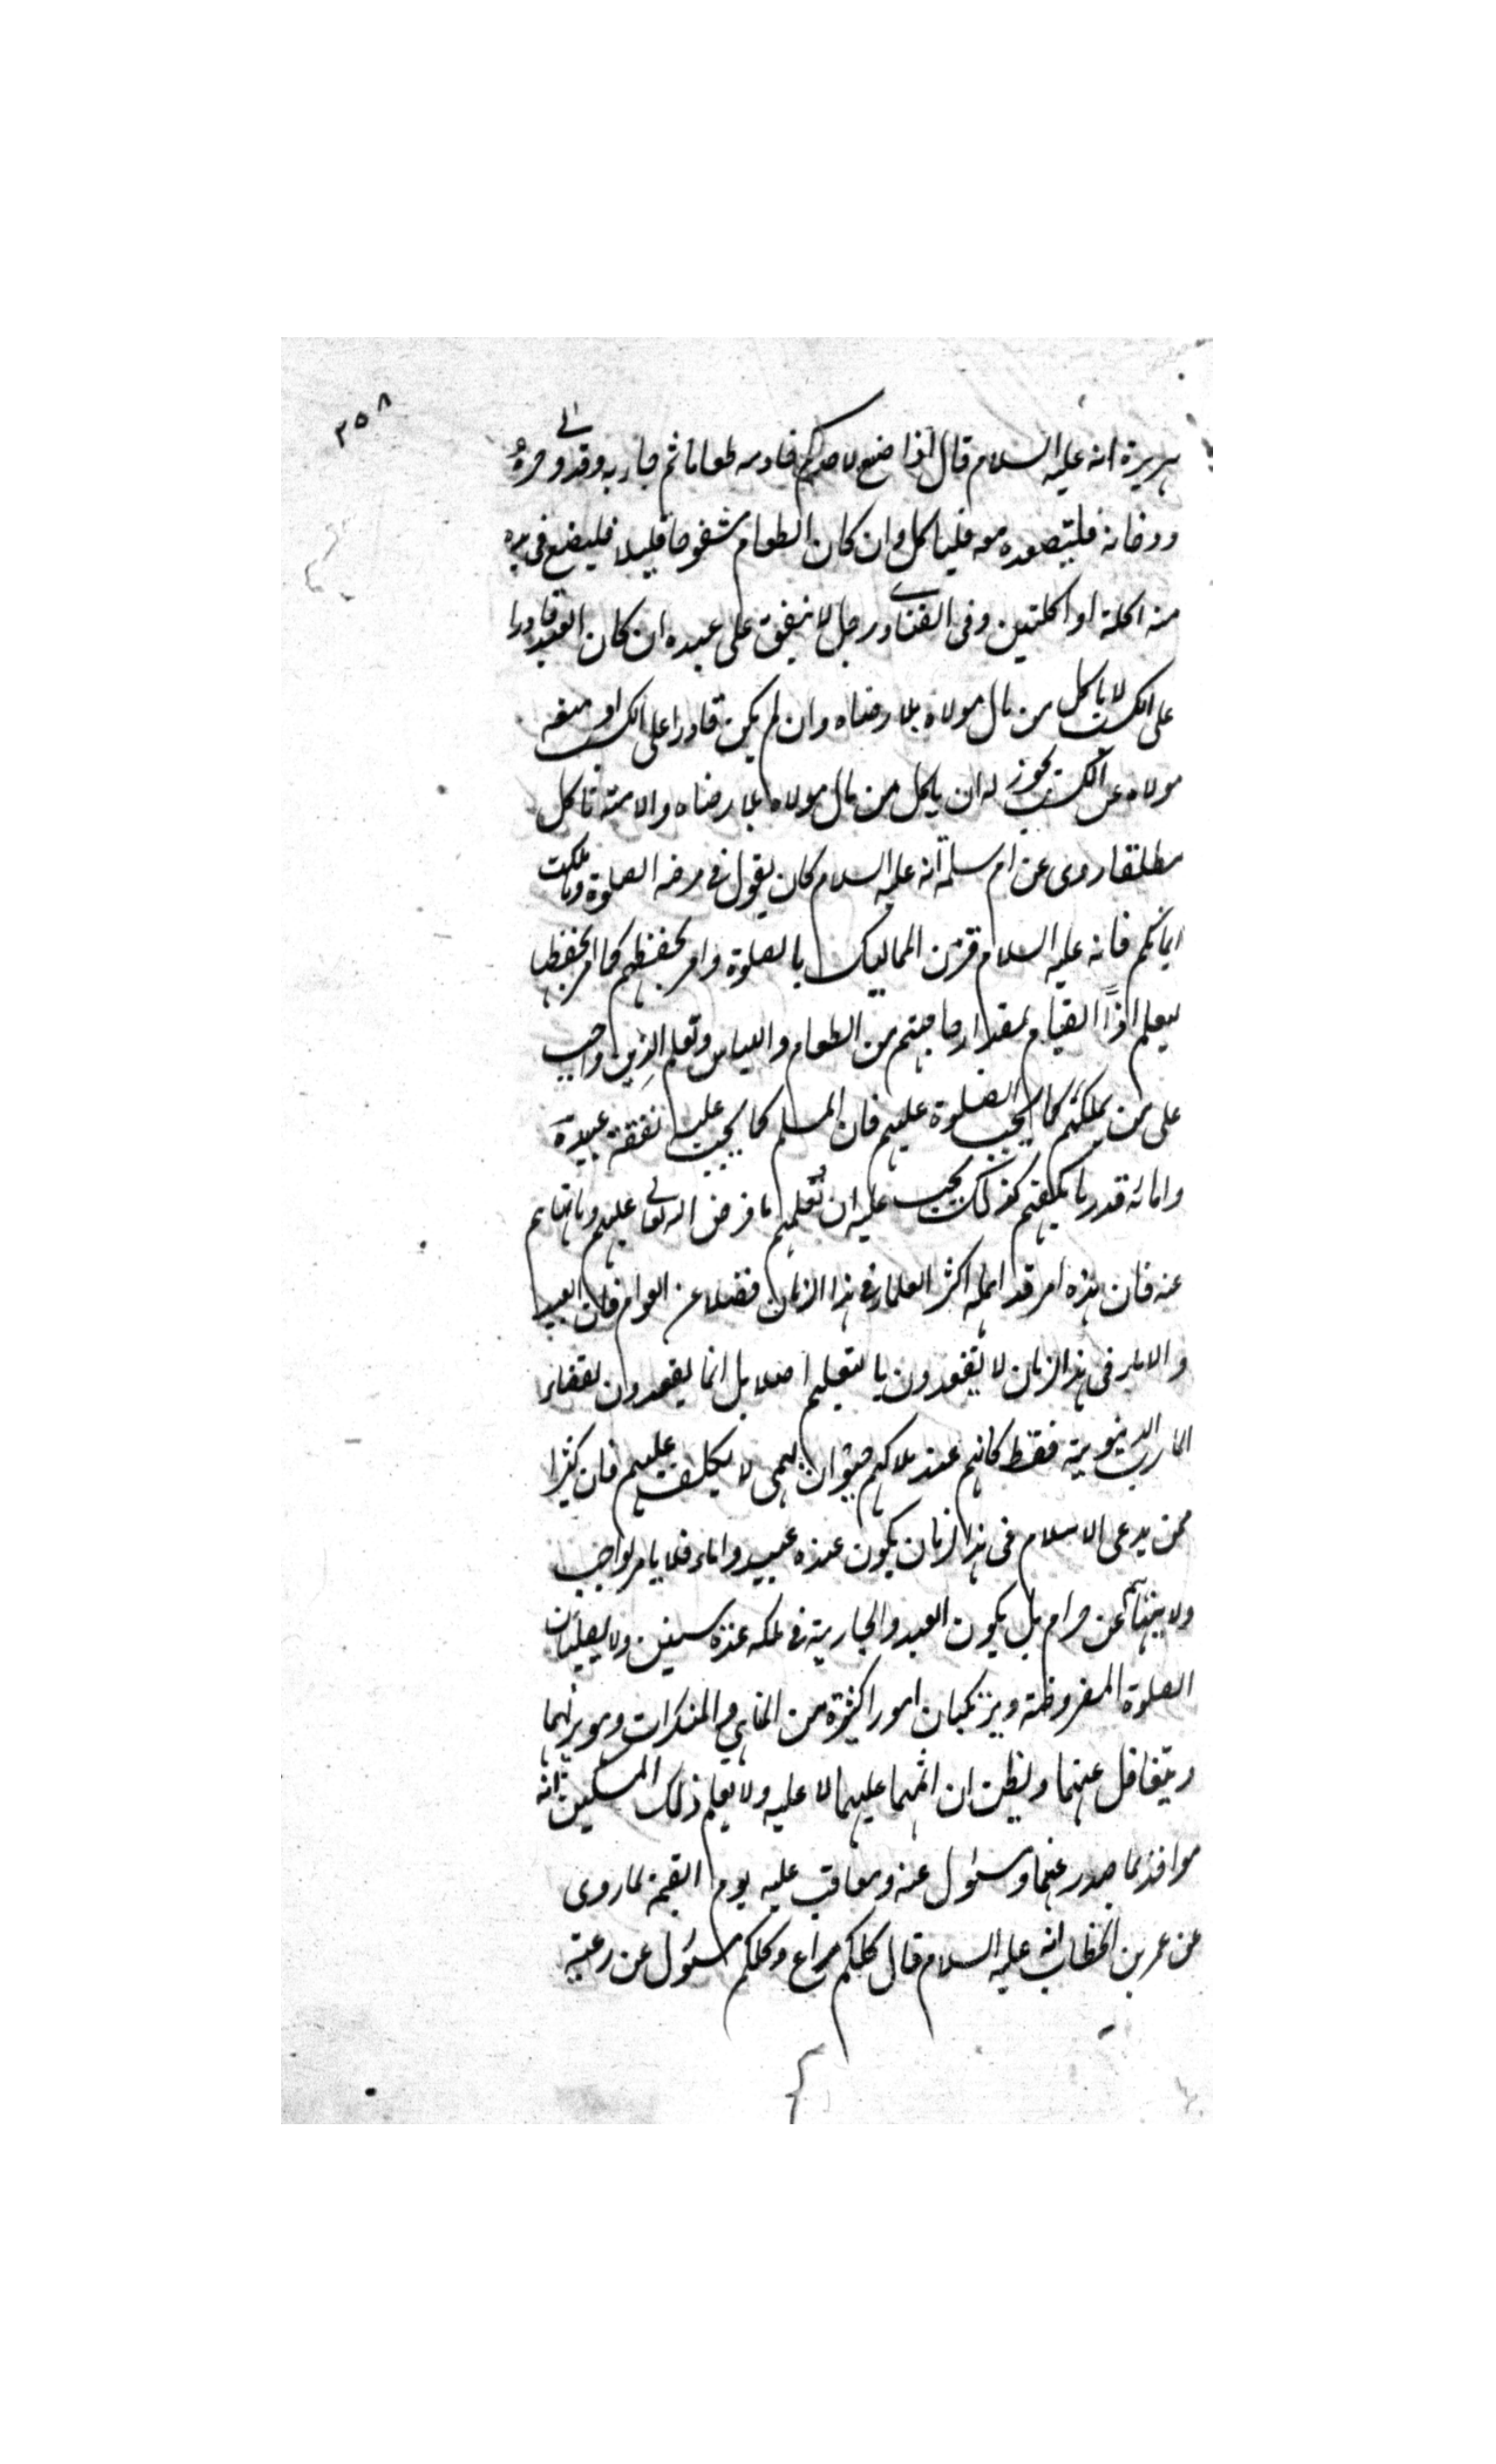 ٣٥٨
هريرة انه عليه السلام قال اذا صنع لاحدكم خادمه طعاما ثم جاء به وقد ولى حره
ودخانه فليقعده معه فلياكل وان كان الطعام مشفوها قليلا فليضع فى يده
منه اكلة او اكلتين وفى الفتاوى رجل لا ينفق على عبده ان كان العبد قادرا
على الكسب لا ياكل من مال مولاه بلا رضاه وان لم يكن قادرا على الكسب او منعه
مولاه عن الكسب يجوز له ان ياكل من مال مولاه بلا رضاه والامة تاكل
مطلقا روى عن ام سلمة انه عليه السلام كان يقول فى مرضه الصلوة وما ملكت
ايمانكم فانه عليه السلام قرن المماليك بالصلوة وامر بحفظهم كما امر بحفظها
ليعلم اذًا القيام بمقدار حاجتهم من الطعام واللباس وتعلم الدين واجب
على من يملكهم كما يجب الصلوة عليهم فان المسلم كما يجب عليه نفقة عبيده
وامائه قدر ما يكفيهم كذلك يجب عليه ان يعلمهم ما فرض الله تعالى عليهم وما نهاهم
عنه فان هذه امر قد اهمله اكثر العلماء فى هذا الزمان فضلا عن العوام فان العبيد
والاماء فى هذا الزمان لا يقصدون بالتعليم اصلا بل انما يقصدون لقضاء
المآرب الدنيوية فقط كانهم عند ملاكهم حيوان بهمى لا تكليف عليهم فان كثيرا
ممن يدعى الاسلام فى هذا الزمان يكون عنده عبيد واماء فلا يامر بواجب
ولا ينهاهم عن حرام بل يكون العبد والجارية فى ملكه عنده سنين ولا يصليان
الصلوة المفروضة ويرتكبان امورا كثيرة من المناهى والمنكرات وهو يراهما
ويتغافل عنهما ويظن ان اثمهما عليهما لا عليه ولا يعلم ذلك المسكين انه
مواخذ بما صدر عنهما ومسئول عنه ومعاقب عليه يوم القيمة لما روى
عن عمر بن الخطاب انه عليه السلام قال كلكم راع وكلكم مسئول عن رعيته